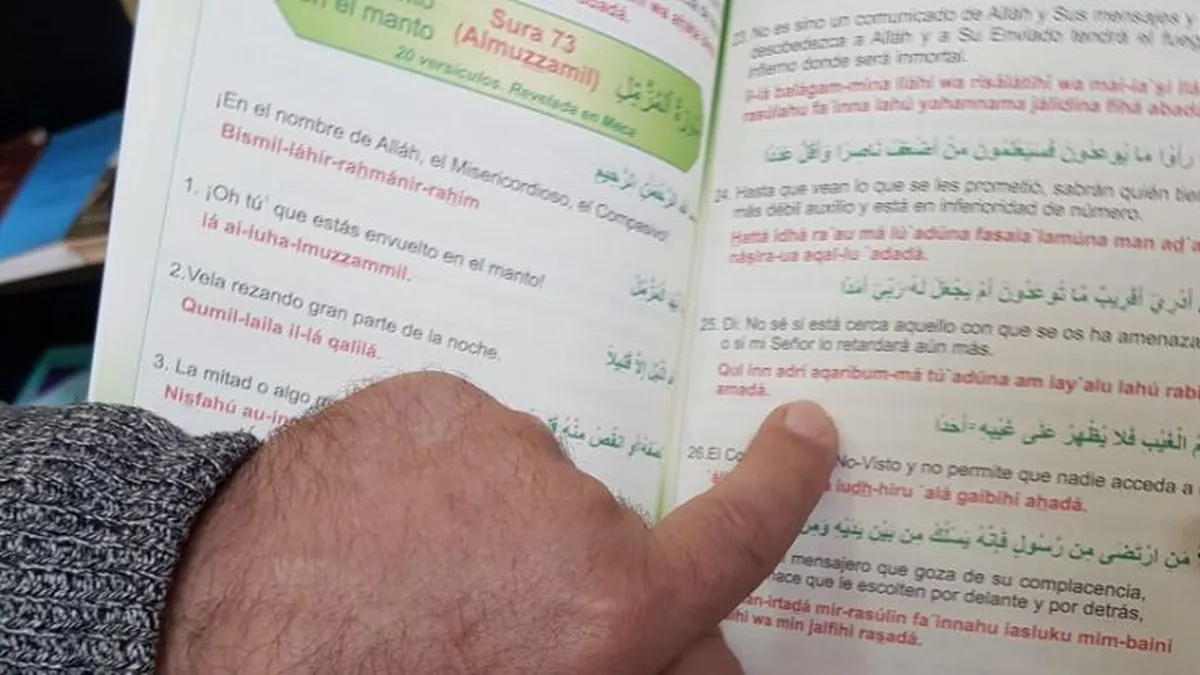 en el manto
Sura 73
(Almuzzamil)
20 versículos. Revelada en Meca
¡En el nombre de Alláh, el Misericordioso, el Compasivo!
Bismil-láhir-rahmánir-rahim
1. ¡Oh tú' que estás envuelto en el manto!
Iá ai-iuha-lmuzzammil.
2.Vela rezando gran parte de la noche.
Qumil-laila il-lá qalilá.
3. La mitad o algo
Nisfahú
أو انقص منه
23. No es sino un comunicado de Alláh y Sus mensajes y
desobedezca a Alláh y a Su Enviado tendrá el
infierno donde será inmortal.
Il-lá balágam-mina
fa'inna lahú yahannama jálidina fihá
رأوا ما يوعدون فسيعلمون من أضعف ناصرا وأقل عددا
24. Hasta que vean lo que se les prometió, sabrán quién
más débil auxilio y está en inferioridad de número.
Hattá idhá ra'au má iú'adúna fasaia'lamúna man
násira-ua aqal-lu 'adadá.
أدري أقريب ما توعدون أم يجعل له ربي أمدا
25. Di: No sé si está cerca aquello con que se os ha
o si mi Señor lo retardará aún más.
Qul inn adri aqaribum-má tú'adúna am iay'alu lahú
amadá.
الغيب فلا يظهر على غيبه أحدا
26.El
No-Visto y no permite que nadie acceda a
iudh-hiru 'alá gaibihi ahadá.
من ارتضى من رسول فإنه يسلك من بين يديه
mensajero que goza de su complacencia,
hace que le escolten por delante y por detrás,
mir-rasúlin fa'innahu iasluku mim-baini
wa min jalfihi rasadá.